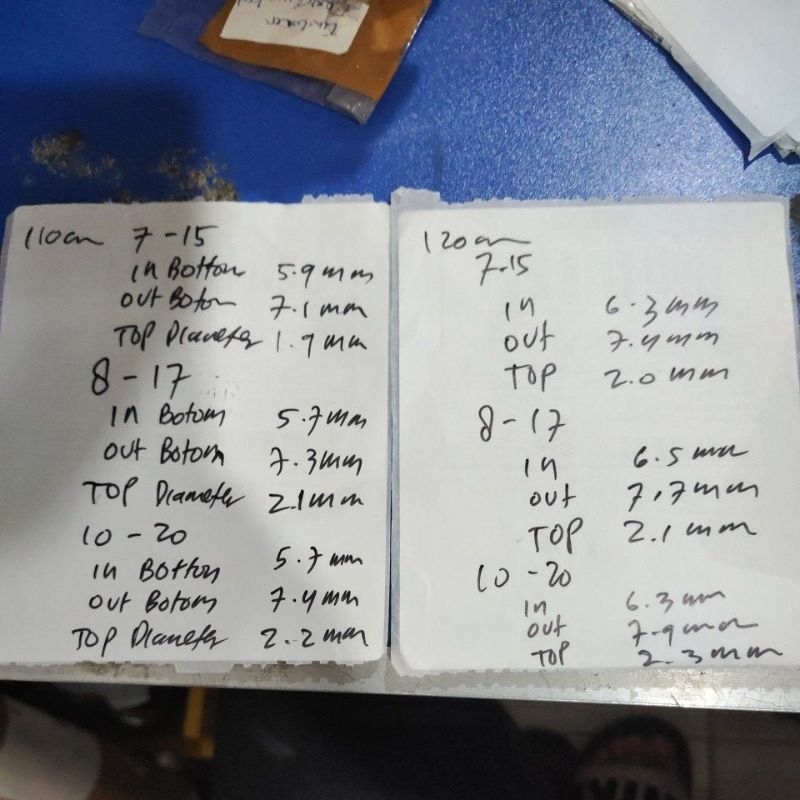 110cm 7-15
in Bottom 5.9mm
out Botom 7.1mm
TOP Diameter 1.9mm
8-17
in Botom 5.7mm
out Botom 7.3mm
TOP Diameter 2.1mm
10-20
in Bottom 5.7mm
out Botom 7.4mm
TOP Diameter 2.2mm
120cm
7-15
in 6.3mm
out 7.4mm
TOP 2.0mm
8-17
in 6.5mm
out 7.7mm
TOP 2.1mm
10-20
in 6.3mm
out 7.9mm
TOP 2.3mm